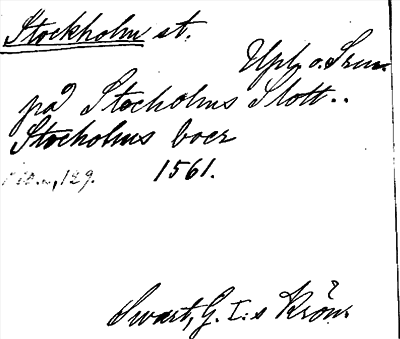 Stockholm st.
Upl. o. Srm.
på Stocholms Slott..
Stocholms boer
129. 1561.
Swart, G. I:s Krön.